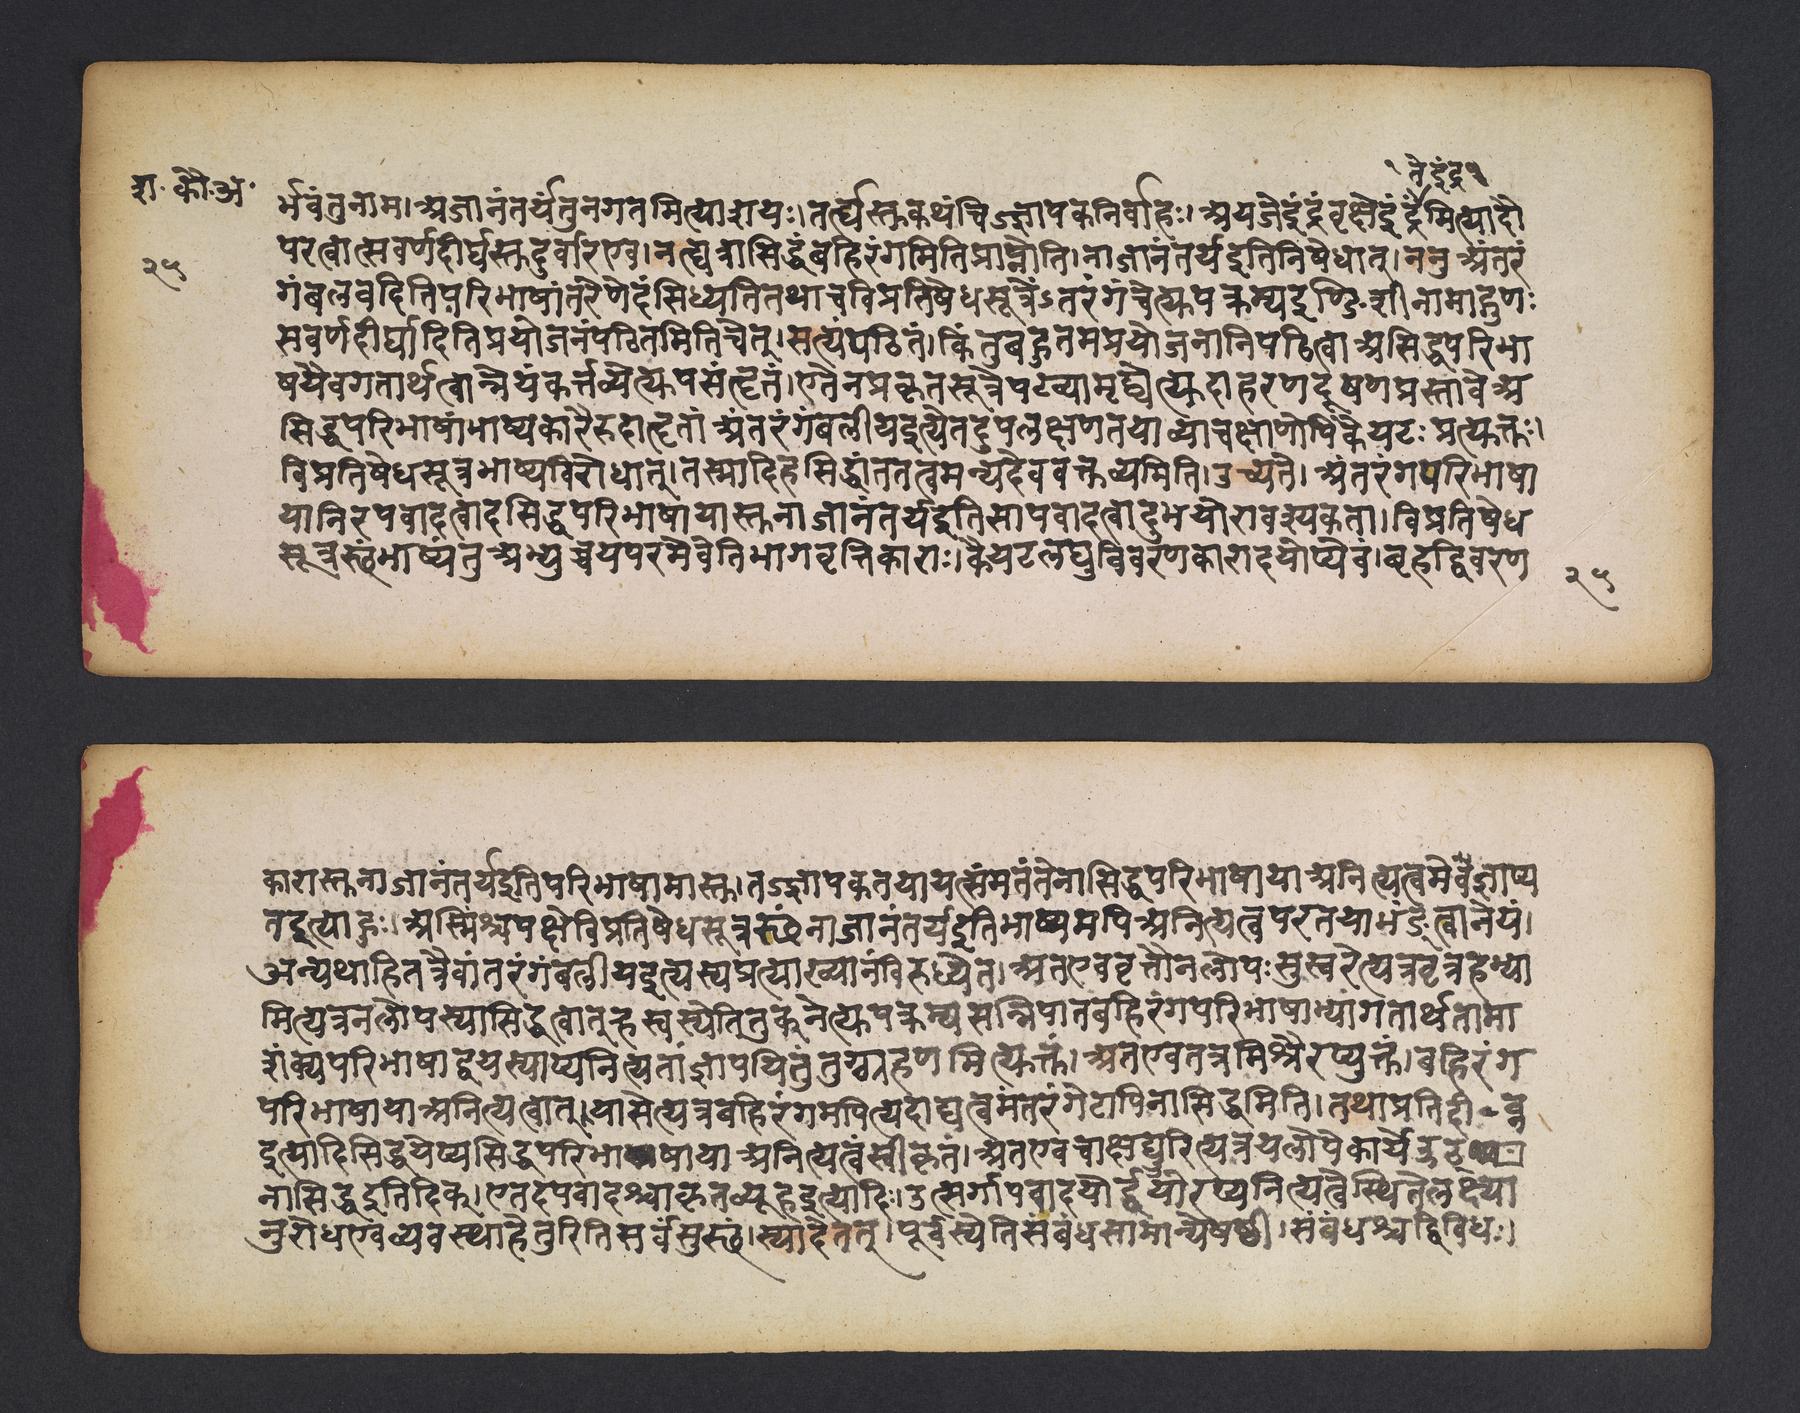 शा॰ कौ॰ अ॰
नेइंद्र
र्भवंतुनाम।अजानंतर्यंतुनगतमित्याशयः।तर्ह्यस्तुकथंचिज्ज्ञापकनिर्वाहः।अयजेइंद्रंवृक्षेइंद्रमित्यादौ
२५
परत्वात्सवर्णदीर्घस्तुदुर्वारएव।नत्द्यत्रासिद्धंबहिरंगमितिप्राप्नोति।नाजानंतर्यइतिनिषेधात्।ननुअंतरं
गंबलवदितिपरिभाषांतरेणेदंसिध्यतितथाचविप्रतिषेधसूत्रेंऽतरंगंचेत्युपक्रम्यइण्ङि॰शीनामाद्गुणः
सवर्णदीर्घादितिप्रयोजनंपठितमितिचेत्।सत्यंपठितं।किंतुबहुतमप्रयोजनानिपठित्वाअसिद्धपरिभा
षयैवगतार्थत्वान्नेयंकर्त्तव्येत्युपसंत्दृतं।एतेनप्रकृतसूत्रेपट्व्यामृद्व्येत्युदाहरणदूषणप्रस्तावेअ
सिद्धपरिभाषांभाष्यकारैरुदात्दृतां अंतरंगंबलीयइत्येतदुपलक्षणतयाव्याचक्षाणोपिकैयटःप्रत्युक्तः।
विप्रतिषेधसूत्रभाष्यविरोधात्।तस्मादिहसिद्धांततत्वमन्यदेववक्तव्यमिति।उच्यते।अंतरंगपरिभाषा
यानिरपवादत्वादसिद्धपरिभाषायास्तुनाजानंतर्यइतिसापवादत्वादुभयोरावश्यकता।विप्रतिषेध
सूत्रस्थंभाष्यंतुअभ्युच्चयपरमेवेतिभागवृत्तिकाराः।कैयटलघुविवरणकारादयोप्येवं।बृहद्विवरण
२५
कारास्तुनाजानंतर्यइतिपरिभाषामास्तु।तज्ज्ञापकतयायत्संमतंतेनासिद्धपरिभाषायाअनित्यत्वमेवज्ञाप्य
तइत्याहुः।अस्मिंश्चपक्षेविप्रतिषेधसूत्रस्थंनाजानंतर्यइतिभाष्यमपिअनित्यत्वपरतयाभंङ्क्त्वानेयं।
अन्यथाहितत्रैवांतरंगंबलीयइत्यस्यप्रत्याख्यानंविरुध्येत।अतएववृत्तौनलोपःसुस्वरेत्यत्रवृत्रहभ्या
मित्यत्रनलोपस्यासिद्धत्वात्ह्रस्वस्येतितुक्नेत्युपक्रम्यसन्निपातबहिरंगपरिभाषाभ्यांगतार्थतामा
शंक्यपरिभाषाद्वयस्याप्यनित्यतांज्ञापयितुंतुग्ग्रहणमित्युक्तं।अतएवतत्रमिश्रैरप्युक्तं।बहिरंग
परिभाषायाअनित्यत्वात्।यासेत्यत्रबहिरंगमपित्यदाद्यत्वमंतरंगेटापिनासिद्धमिति।तथाप्रतिदी॰व्न
इत्यादिसिद्धयेप्यसिद्धपरिभाषायाअनित्यत्वंस्वीकृतं।अतएवचाक्षद्यूरित्यत्रयलोपेकार्येऊठ्
नासिद्धइतिदिक्।एतदपवादश्चाकृतव्यूहइत्यादिः।उत्सर्गापवादयोर्द्वयोरप्यनित्यत्वेस्थितेलक्ष्या
नुरोधएवव्यवस्थाहेतुरितिसर्वंसुस्थं।स्यादेतत्।पूर्वस्येतिसंबंधसामान्येषष्ठी।संबंधश्चद्विविधः।